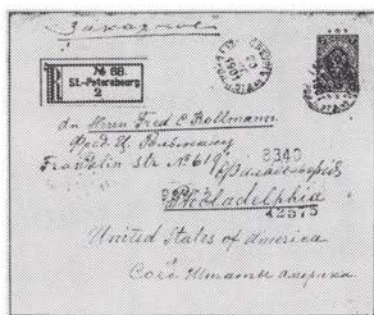 Заказное
№ 68.
St.-Petersbourg
2
An Herrn Fred C Rollmann.
Фред. Ц. Рольманну
Franklin str № 619
Филадельфія
8340
Philadelphia
42575
United States of America
Соед. Штаты Америки